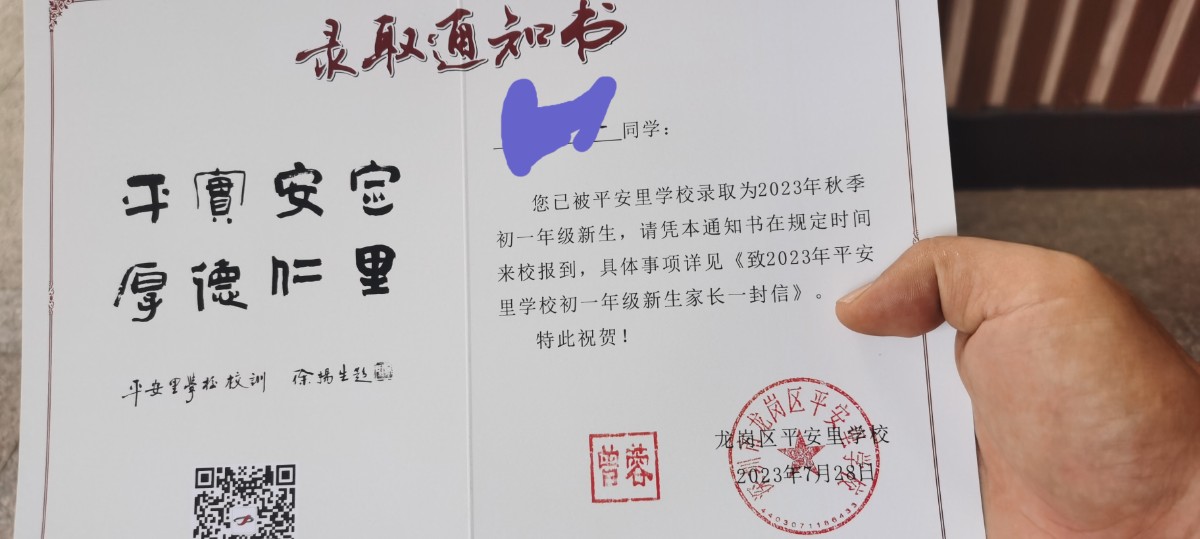 录取通知书
平實安宜
厚德仁里
平安里學校校訓 徐揚生題
同学：
您已被平安里学校录取为2023年秋季
初一年级新生，请凭本通知书在规定时间
来校报到，具体事项详见《致2023年平安
里学校初一年级新生家长一封信》。
特此祝贺！
曾蓉
龙岗区平安里学校
2023年7月28日
深圳市龙岗区平安里学校
4403071186433